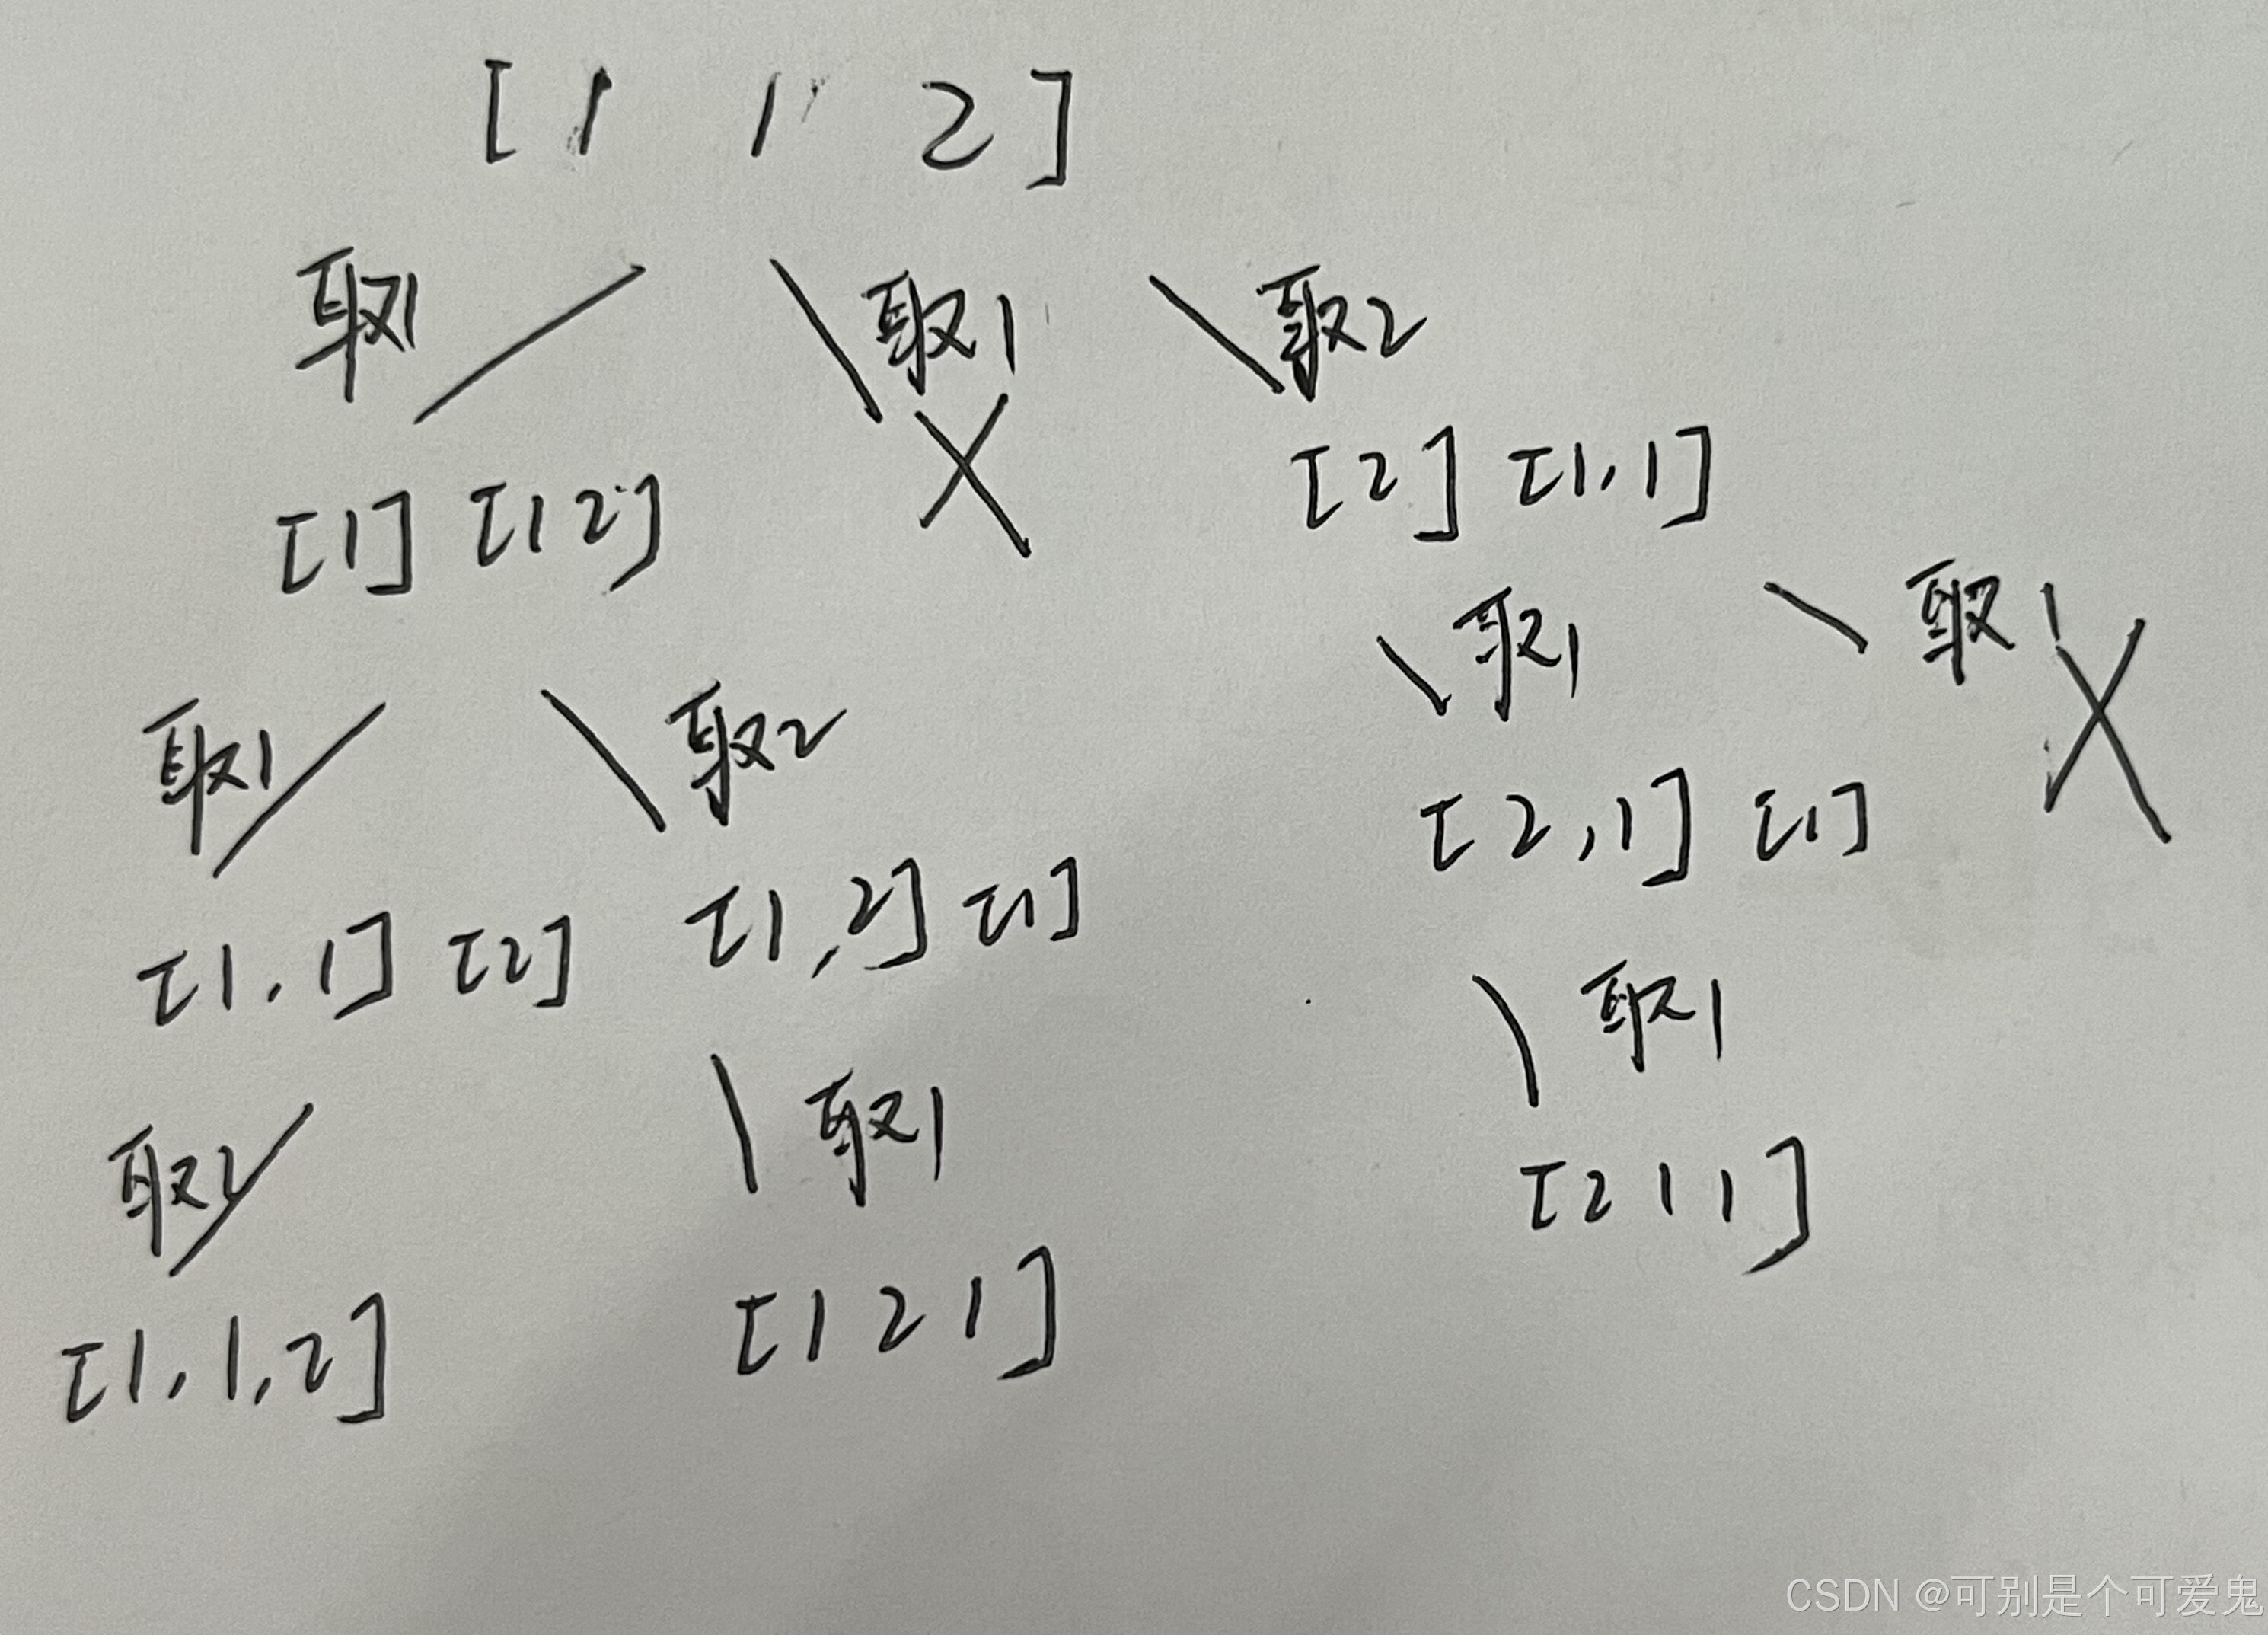 [ 1 1 2 ]
取1 取1 取2
[1] [1 2] [2] [1,1]
取1 取1
取1 取2
[2,1] [1]
[1,1] [2] [1,2] [1]
取1
取2 取1
[2 1 1]
[1,1,2] [1 2 1]
CSDN @可别是个可爱鬼